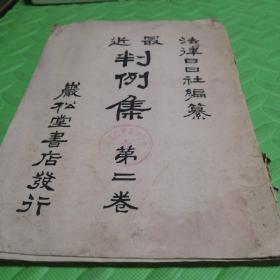 法律日日社編纂
最近
判例集 第二卷
巖松堂書店發行